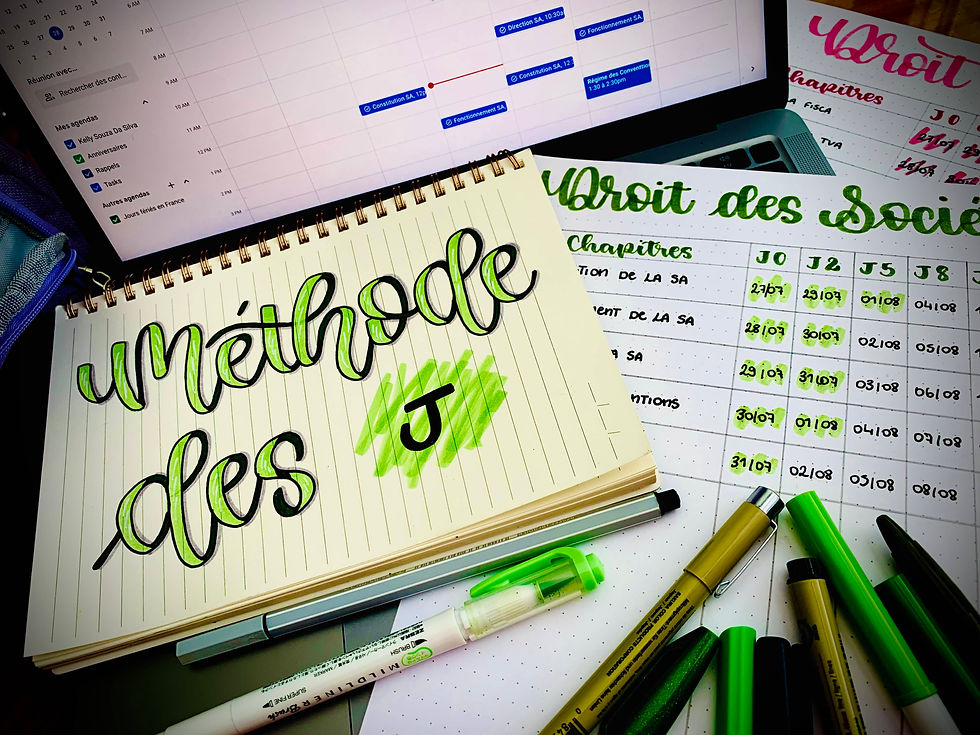 28
7 AM
8 AM
9 AM
10 AM
11 AM
12 PM
1 PM
2 PM
3 PM
Réunion avec...
Rechercher des cont...
Mes agendas
Kelly Souza Da Silva
Anniversaires
Rappels
Tasks
Autres agendas
Jours fériés en France
Direction SA, 10:30a
Fonctionnement SA,
Constitution SA, 12
Constitution SA, 12p
Fonctionnement SA
Régime des Convention
1:30 à 2:30pm
Méthode
des J
Droit
Chapitres J0
A FISCA
TVA
Droit des Socié
Chapitres J0 J2 J5 J8
TION DE LA SA 27/07 29/07 01/08 04/08
MENT DE LA SA 28/07 30/07 02/08 05/08
A SA 29/07 31/07 03/08 06/08
NTIONS 30/07 01/08 04/08 07/08
31/07 02/08 05/08 08/08
ZEBRA
MILDLINER Brush
BRUSH
SUPER FINE
SAKURA COLOR PRODUCTS CORPORATION